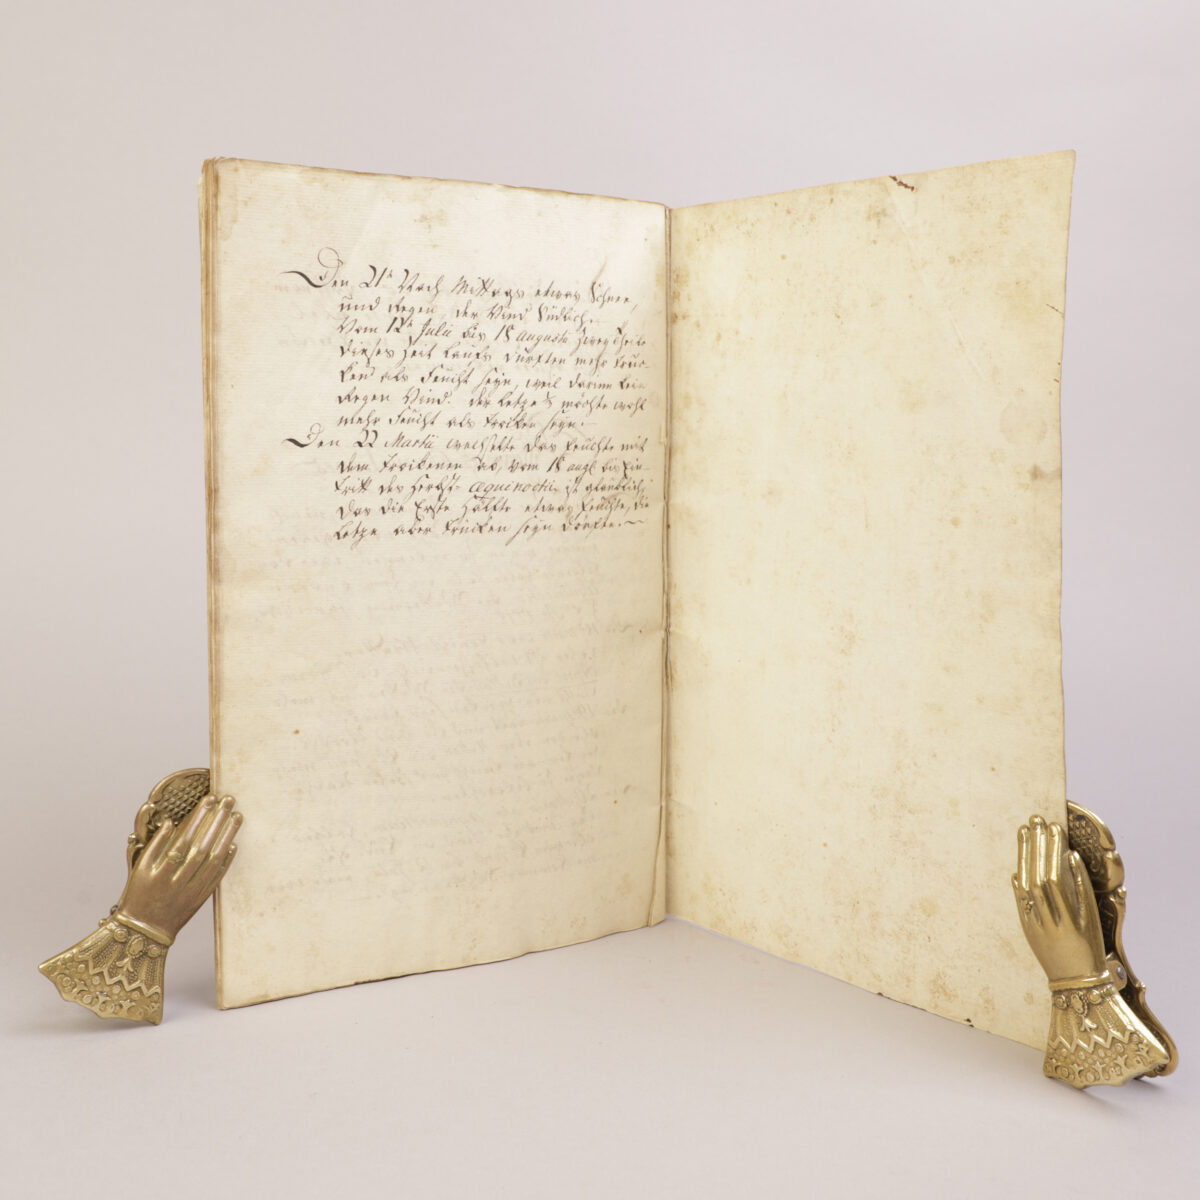 Den 21t Nach Mittags etwas Schnee,
und Regen, der Wind Südlich.
Vom 12t Julii bis 18 augusti zwey theile
dieses Zeit laufs durften mehr truc-
ken als Feucht seyn, weil darinn kein
Regen Wind. der letze möchte wohl
mehr Feucht als trocken seyn.
Den 22 Martii wechselte das Feuchte mit
dem trockenen ab, vom 18 augt bis Ein-
tritt des Herbst- æquinoctii ist glaublich,
das die Erste Hälfte etwas Feuchte, die
letze aber trucken seyn dörfte.